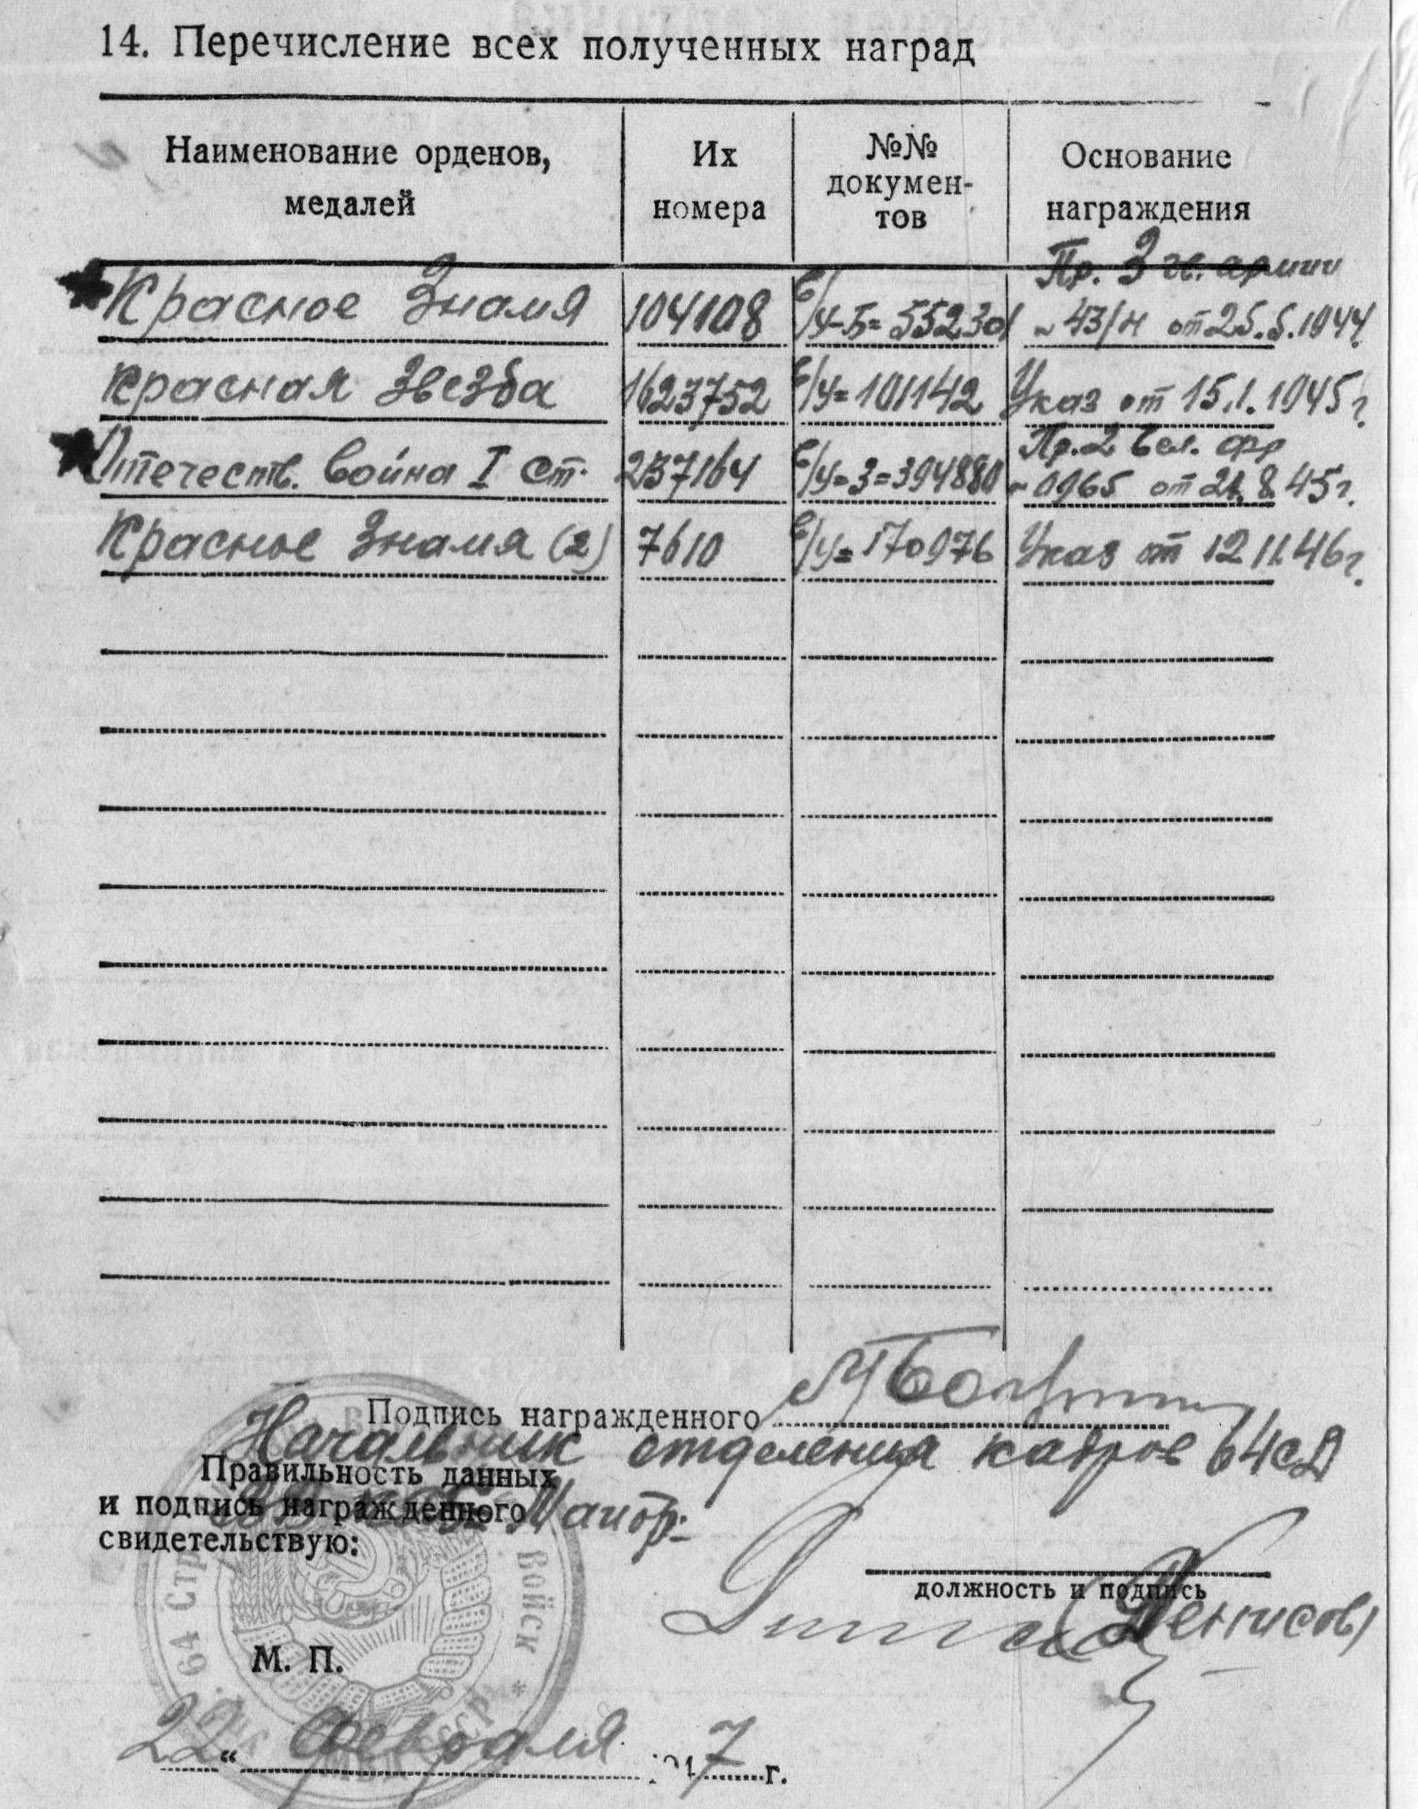 14. Перечисление всех полученных наград
Наименование орденов, медалей
Их номера
№№ докумен-
тов
Основание награждения
Красное Знамя 104108 Е/у-Б= 552301 Пр. 3 гв. армии
№ 43/н от 25.5.1944г.
Красная Звезда 1623752 Е/у= 101142 Указ от 15.1.1945г
Отечеств. война I ст. 237164 Е/у=3=394880 Пр. 2 Бел. фр
№ 0965 от 21.8.45г.
Красное Знамя (2) 7610 Е/у= 170976 Указ от 12 11.46г.
Подпись награжденного
Начальник отделения кадров 64сд
Правильность данных
и подпись награжденного
свидетельствую:
Майор:
должность и подпись
(Денисов)
64 Стр
Войск *
М. П.
22 „ февраля 1947 г.